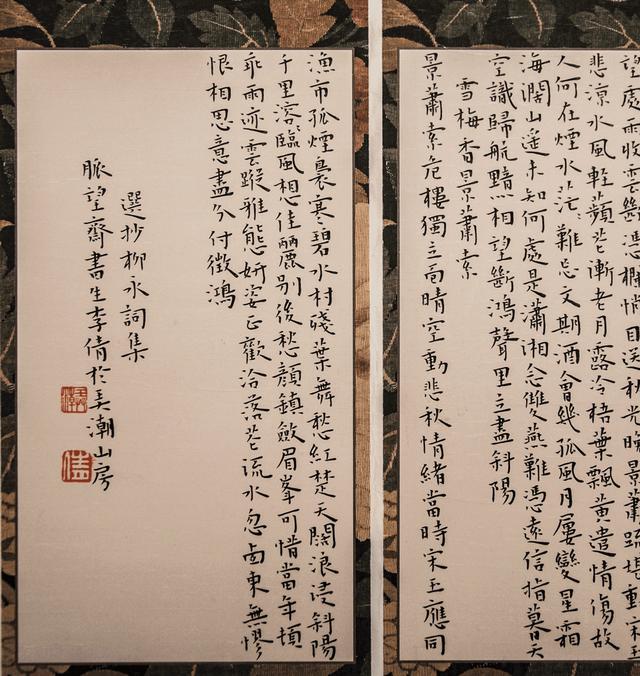 望處雨收雲斷憑欄悄目送秋光晚景蕭疏堪動宋玉
悲涼水風輕蘋花漸老月露冷梧葉飄黃遣情傷故
人何在煙水茫々難忘文期酒會幾孤風月屢變星霜
海闊山遙未知何處是瀟湘念雙燕難憑遠信指暮天
空識歸航黯相望斷鴻聲里立盡斜陽
雪梅香景蕭索
景蕭索危樓獨立面晴空動悲秋情緒當時宋玉應同
漁市孤煙裊寒碧水村殘葉舞愁紅楚天闊浪浸斜陽
千里溶々臨風想佳麗別後愁顏鎮斂眉峯可惜當年頓
乖雨迹雲蹤雅態妍姿正歡洽落花流水忽西東無憀
恨相思意盡分付徵鴻
選抄柳永詞集
脈望齋書生李倩於美潮山房